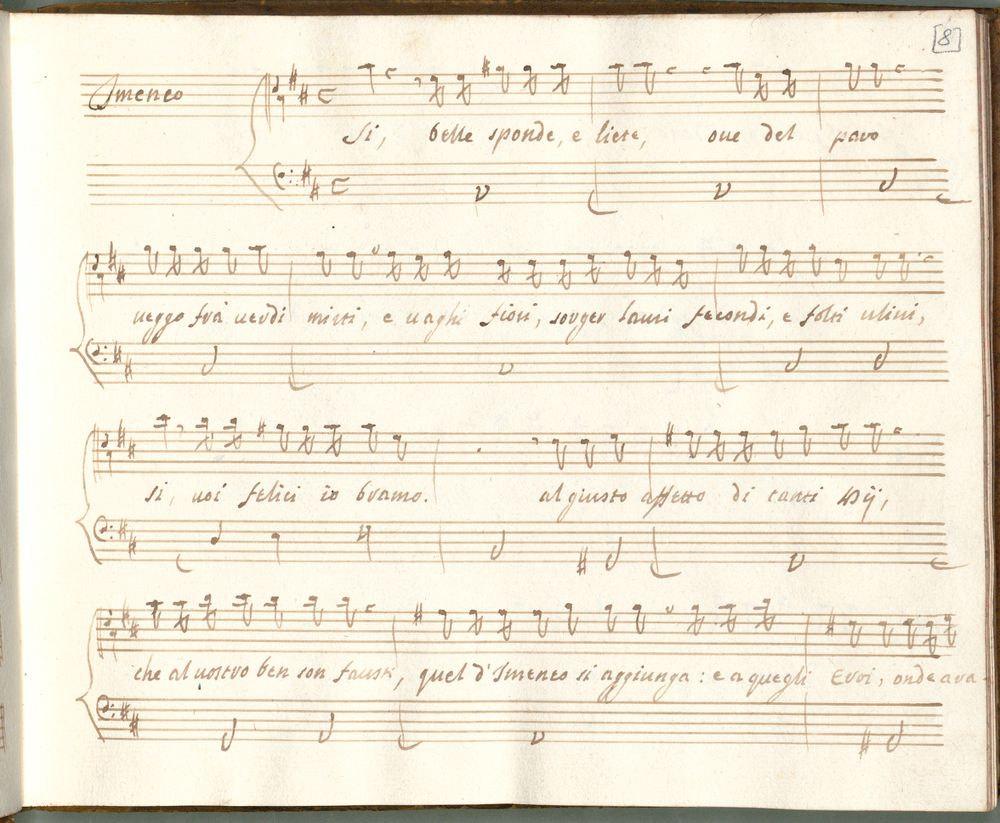 [8]
Imeneo
Si, belle sponde, e liete, oue del pavo
ueggo frà uerdi mirti, e uaghi fiori, sorger lauri fecondi, e folti uliui,
si, uoi felici io bramo. al giusto affetto di tanti Dij,
che al uostro ben son fausti, quel d'Imeneo si aggiunga: e a quegli Eroi, onde aura-